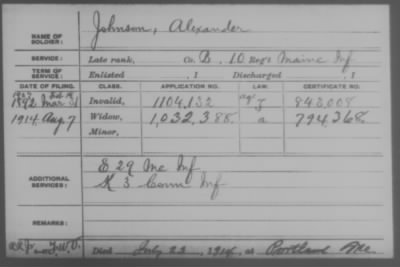 Johnson, Alexander
NAME OF SOLDIER:
SERVICE: Late rank, Co. D, 10 Reg't Maine Inf
TERM OF SERVICE: Enlisted , 1 Discharged , 1
DATE OF FILING. CLASS. APPLICATION NO. LAW. CERTIFICATE NO.
1907
1892 Mar 31 Invalid, 1104,132 843,008
1914 Aug 7 Widow, 1,032,388 a 794,368
Minor,
ADDITIONAL SERVICES: E 29 Me Inf
K 3 Conn Inf
REMARKS:
Died July 22, 1914, at Portland Me.